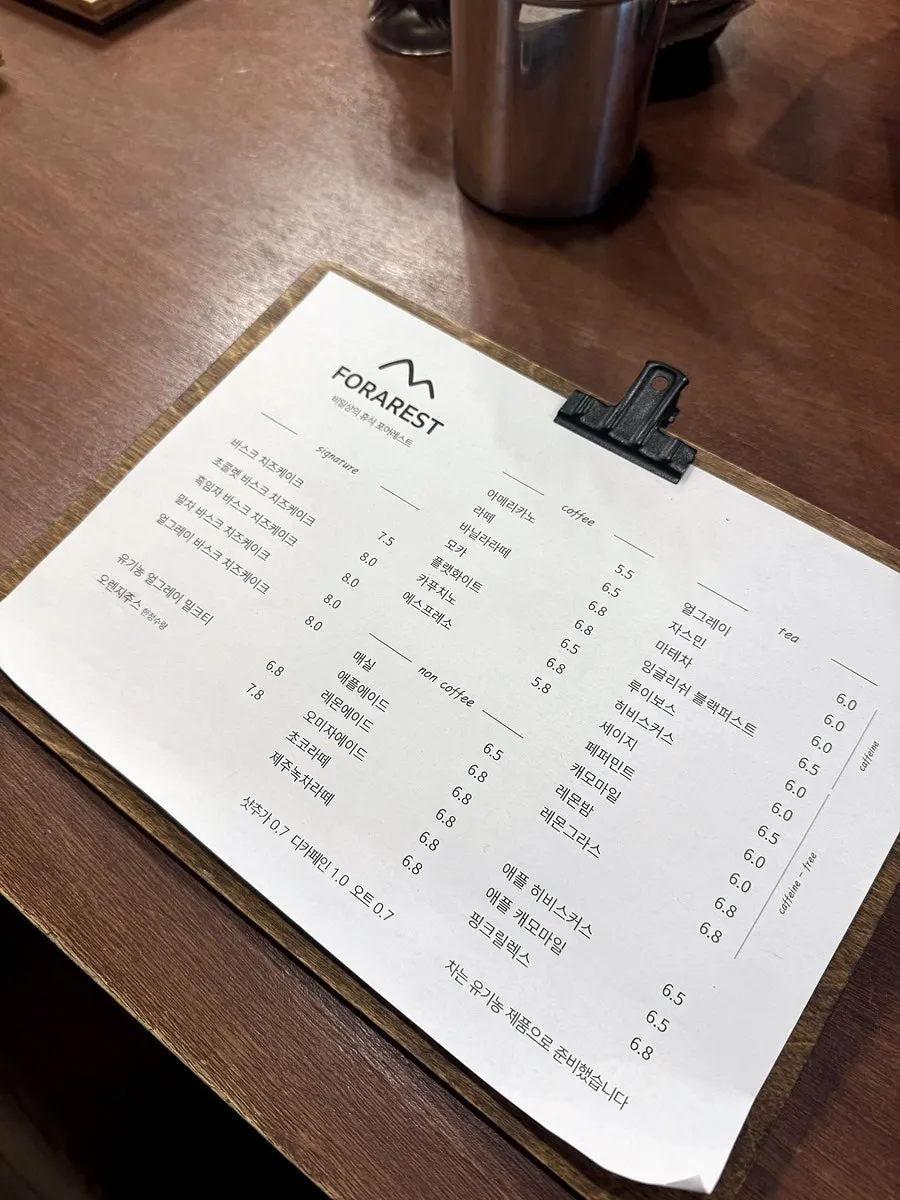 FORAREST
비일상의 휴식 포어레스트
signature
바스크 치즈케이크 7.5
초콜렛 바스크 치즈케이크 8.0
흑임자 바스크 치즈케이크 8.0
말차 바스크 치즈케이크 8.0
얼그레이 바스크 치즈케이크 8.0
유기농 얼그레이 밀크티 6.8
오렌지주스 한정수량 7.8
coffee
아메리카노 5.5
라떼 6.5
바닐라라떼 6.8
모카 6.8
플랫화이트 6.5
카푸치노 6.8
에스프레소 5.8
non coffee
매실 6.5
애플에이드 6.8
레몬에이드 6.8
오미자에이드 6.8
초코라떼 6.8
제주녹차라떼 6.8
샷추가 0.7 디카페인 1.0 오트 0.7
tea
얼그레이 6.0
자스민 6.0
마테차 6.0
잉글리쉬 블랙퍼스트 6.5
루이보스 6.0
히비스커스 6.0
세이지 6.5
페퍼민트 6.0
캐모마일 6.0
레몬밤 6.8
레몬그라스 6.8
caffeine
caffeine - free
애플 히비스커스 6.5
애플 캐모마일 6.5
핑크릴렉스 6.8
차는 유기농 제품으로 준비했습니다